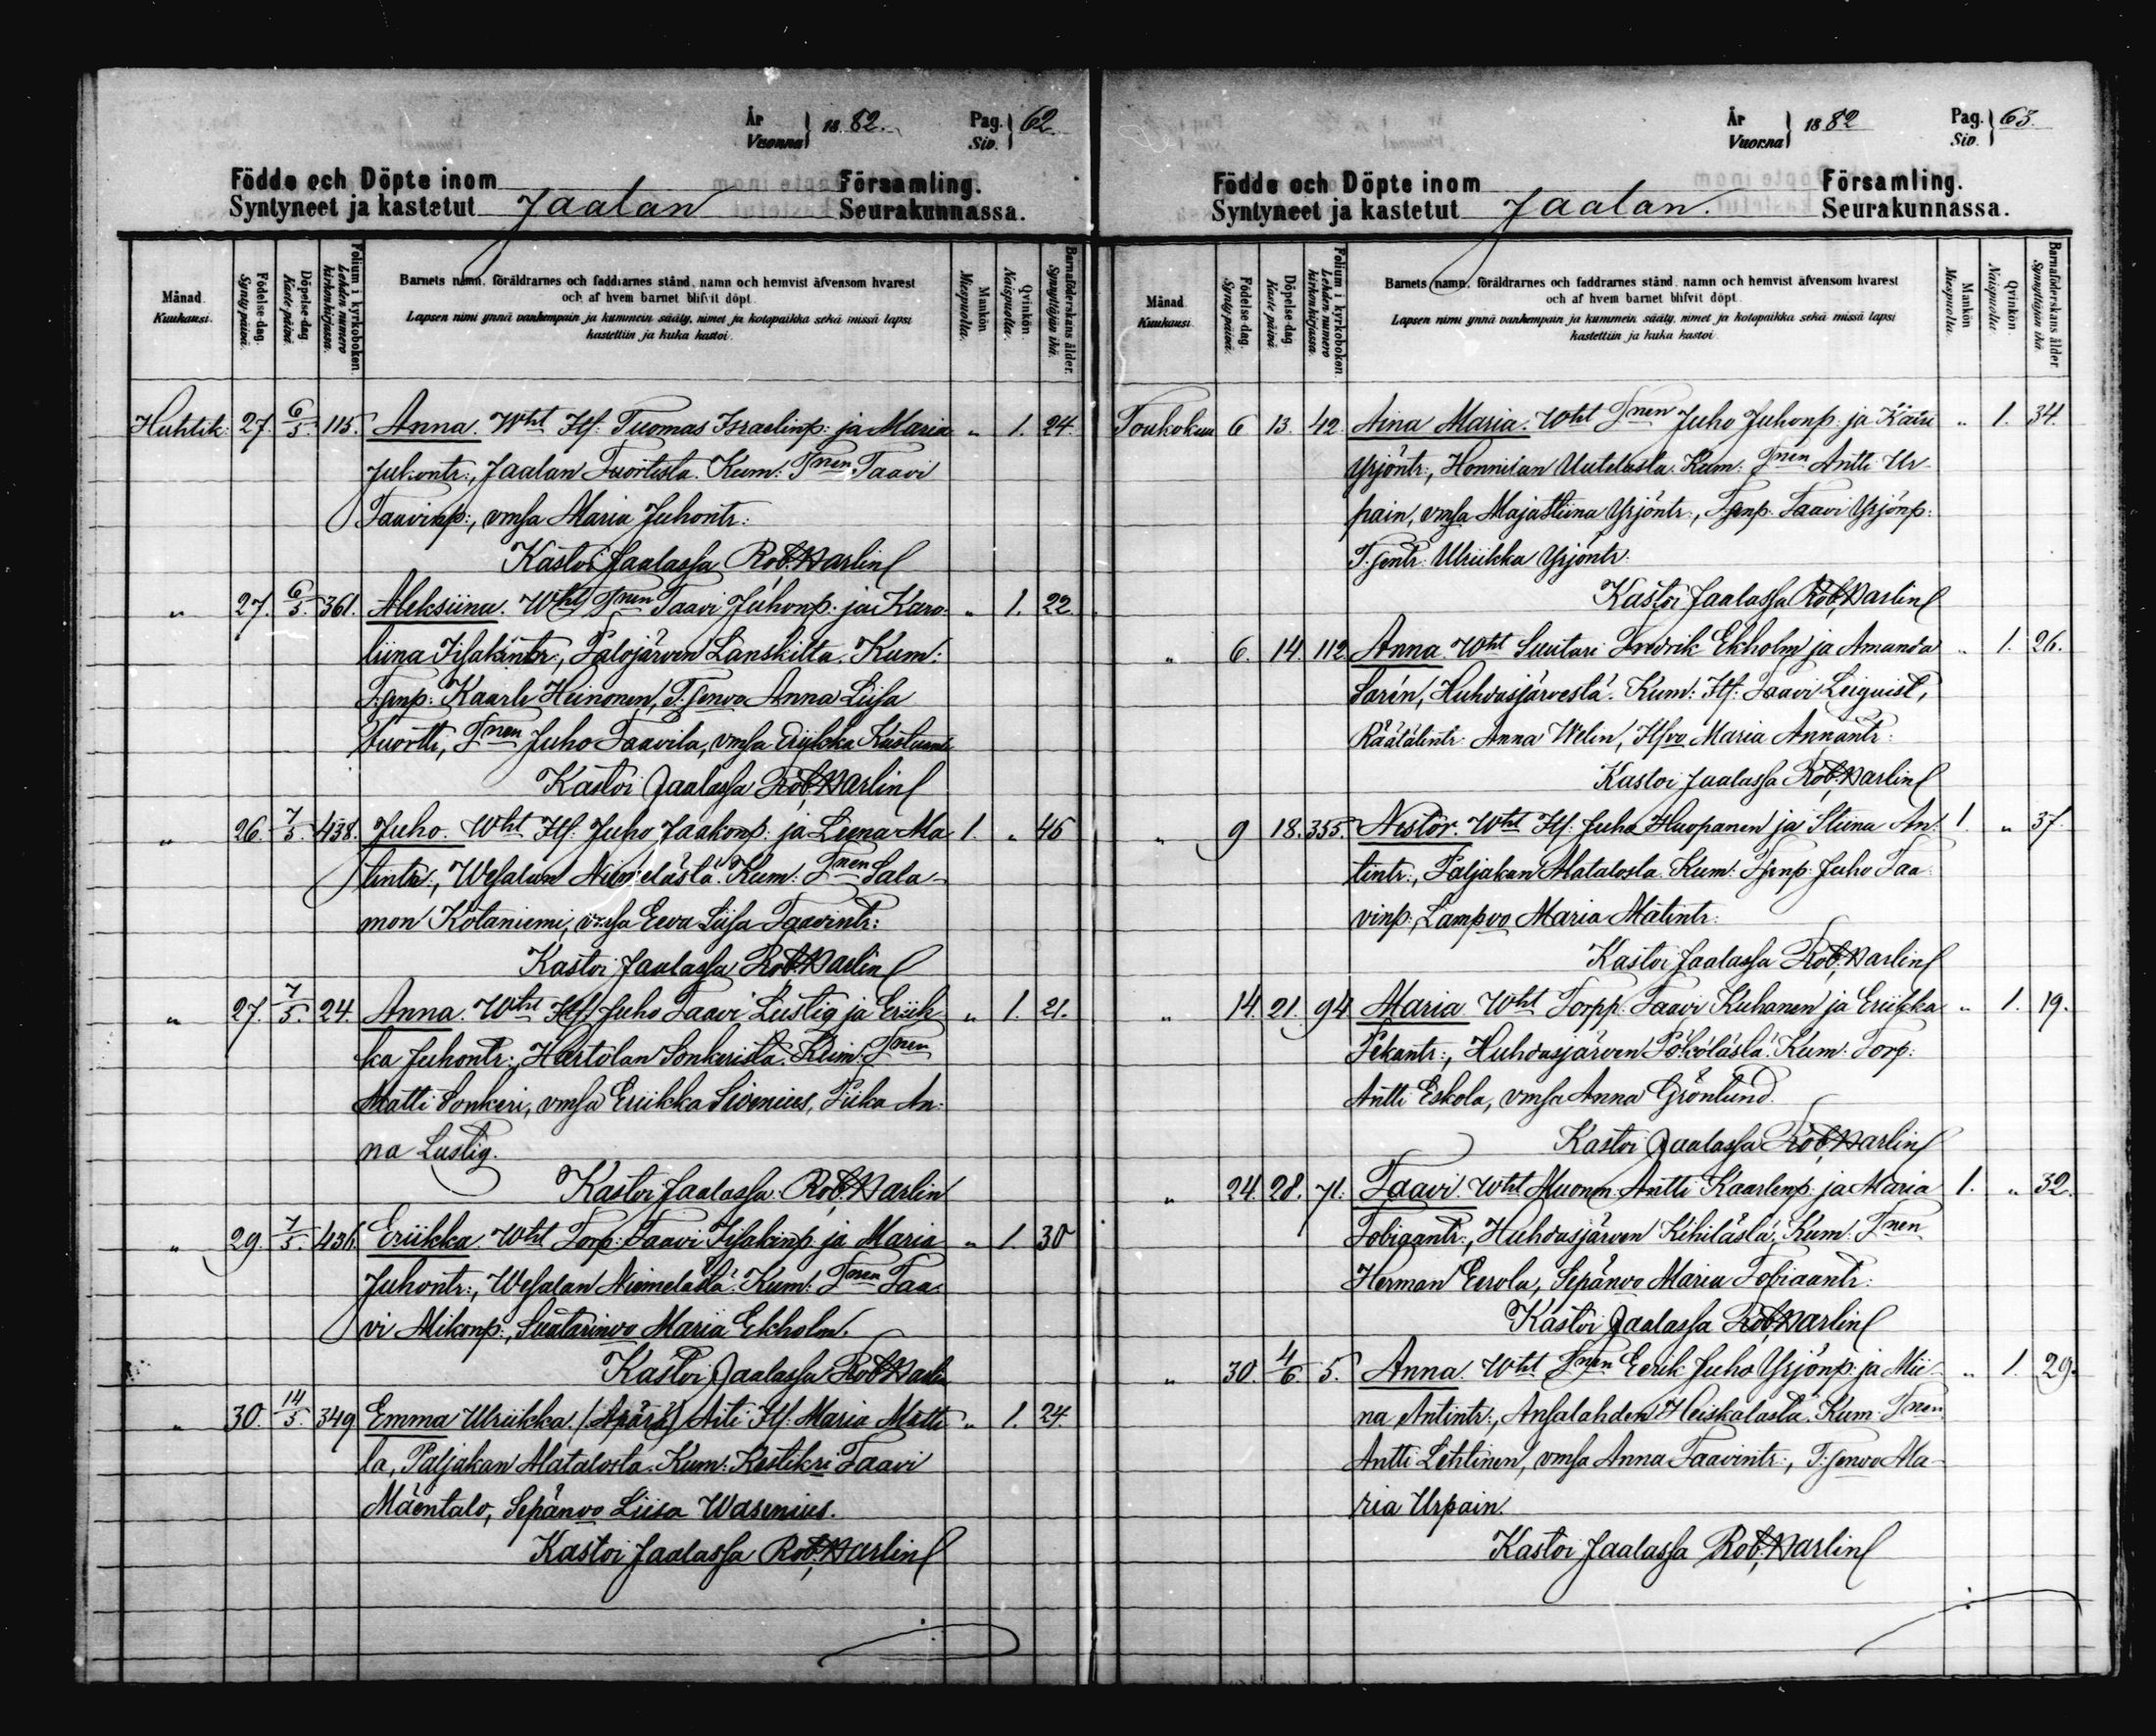 År
Vuonna
1882.
Pag.
Siv.
62
Födde och Döpte inom
Församling.
Syntyneet ja kastetut Jaalan Seurakunnassa.
Månad.
Kuukausi.
Födelse-dag.
Synty päivä.
Döpelse-dag.
Kaste päivä.
Folium i kyrkoboken.
Lehden numero kirkonkirjassa.
Barnets namn, föräldrarnes och faddrarnes stånd, namn och hemvist äfvensom hvarest
och af hvem barnet blifvit döpt.
Lapsen nimi ynnä vanhempain ja kummein sääty, nimet ja kotopaikka sekä missä lapsi
kastettiin ja kuka kastoi.
Mankön.
Miespuolia.
Qvinkön.
Naispuolia.
Barnaföderskans ålder.
Synnyttäjän ikä.
Huhtik: 27. 6/5. 115. Anna. Wht Itf: Tuomas Israelinp: ja Maria „ 1. 24.
Juhontr:, Jaalan Tuortista. Kum: Tnen Taavi
Taavinp:, vmsa Maria Juhontr:
Kastoi Jaalassa Rob. Warlin
„ 27. 6/5. 361. Aleksiina. Wht Tnen Taavi Juhonp: ja Karo- „ 1. 22.
liina Iisakintr:, Palojärven Lanskilta. Kum:
T:genp: Kaarle Heinonen, T:genvo Anna Liisa
Vuortti, Tnen Juho Taavila, vmsa
Kastoi Jaalassa Rob. Warlin
„ 26. 7/5. 438. Juho. Wht Itf: Juho Jaakonp: ja Leena Ma 1. „ 46
tintr:, Wesalan Niemelästä. Kum: Tnen Sala-
mon Kotaniemi, vmsa Eeva Liisa Taavintr:
Kastoi Jaalassa Rob. Warlin
„ 27. 7/5. 24. Anna. Wht Itf: Juho Taavi Lustig ja Eriik- „ 1. 21.
ka Juhontr:, Hartolan Sonkerista. Kum: Tnen
Matti Sonkeri, vmsa Eriikka Sivenius, Piika An-
na Lustig.
Kastoi Jaalassa Rob. Warlin
„ 29. 7/5. 436. Eriikka. Wht Torp: Taavi Iisakinp: ja Maria „ 1. 30
Juhontr:, Wesalan Niemelästä. Kum: Tnen Taa-
vi Mikonp:, Suutarinvo Maria Ekholm.
Kastoi Jaalassa Rob. Warlin
„ 30. 14/5. 349 Emma Ulriikka. (Äpärä) Äiti Itf: Maria Matti „ 1. 24.
la, Paljakan Matalosta. Kum: Kestikri Taavi
Mäentalo, Sepänvo Liisa Wasenius.
Kastoi Jaalassa Rob. Warlin
År
Vuonna
1882
Pag.
Siv.
63.
Födde och Döpte inom
Församling.
Syntyneet ja kastetut Jaalan. Seurakunnassa.
Månad.
Kuukausi.
Födelse-dag.
Synty päivä.
Döpelse-dag.
Kaste päivä.
Folium i kyrkoboken.
Lehden numero kirkonkirjassa.
Barnets namn, föräldrarnes och faddrarnes stånd, namn och hemvist äfvensom hvarest
och af hvem barnet blifvit döpt.
Lapsen nimi ynnä vanhempain ja kummein sääty, nimet ja kotopaikka sekä missä lapsi
kastettiin ja kuka kastoi.
Mankön.
Miespuolia.
Qvinkön.
Naispuolia.
Barnaföderskans ålder.
Synnyttäjän ikä.
Toukokuu 6 13. 42. Aina Maria. Wht Tnen Juho Juhonp: ja Katri „ 1. 34.
Yrjöntr:, Honnilan Uutelasta. Kum: Tnen Antti Ur-
pain, vmsa Majastiina Yrjöntr:, T:genp: Taavi Yrjönp:
T:gentr: Ulriikka Yrjöntr:
Kastoi Jaalassa Rob. Warlin
„ 6. 14. 112. Anna. Wht Suutari Fredrik Ekholm ja Amanda „ 1. 26.
Sarén, Huhdasjärvestä. Kum: Itf: Taavi Leiquist,
Räätälintr: Anna Welin, Itfvo Maria Annantr:
Kastoi Jaalassa Rob. Warlin
„ 9 18. 355. Nestor. Wht Itf: Juho Huopanen ja Stiina An- 1. „ 37.
tintr:, Paljakan Matalosta. Kum: T:genp: Juho Taa
vinp:, Lampvo Maria Matintr:
Kastoi Jaalassa Rob. Warlin
„ 14. 21. 94 Maria Wht Torpp: Taavi Kuhanen ja Eriikka „ 1. 19.
Pekantr:, Huhdasjärven Pökölästä. Kum: Torp:
Antti Eskola, vmsa Anna Grönlund.
Kastoi Jaalassa Rob. Warlin
„ 24. 28. 71. Taavi. Wht Muonm: Antti Kaarlenp: ja Maria 1. „ 32.
Tobiaantr:, Huhdasjärven Kihilästä. Kum: Tnen
Herman Eerola, Sepänvo Maria Tobiaantr:
Kastoi Jaalassa Rob. Warlin
„ 30. 4/6. 5. Anna. Wht Tnen Eerik Juho Yrjönp: ja Mii- „ 1. 29.
na Antintr:, Ansalahden Heiskalasta. Kum: Tnen
Antti Lehtinen, vmsa Anna Taavintr:, T:genvo Ma-
ria Urpain.
Kastoi Jaalassa Rob. Warlin